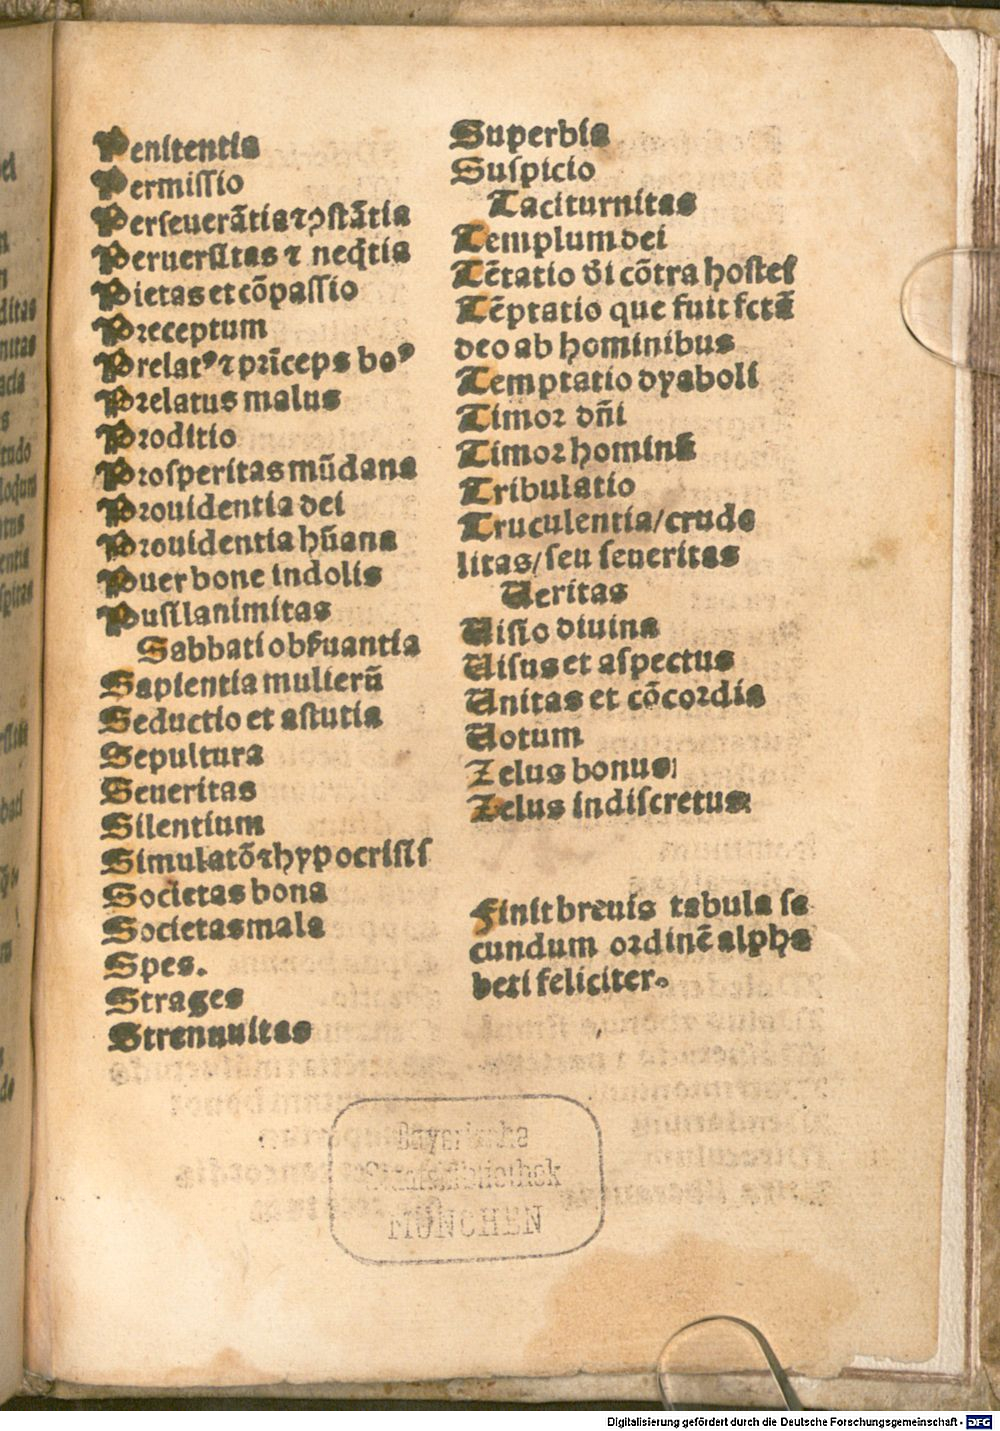 Penitentia
Permissio
Perseuerãtia ⁊ ↄstãtia
Peruersitas ⁊ neq̃tia
Pietas et cõpassio
Preceptum
Prelatꝰ ⁊ prĩceps boꝰ
Prelatus malus
Proditio
Prosperitas mũdana
Prouidentia dei
Prouidentia hũana
Puer bone indolis
Pusilanimitas
Sabbati obẜuantia
Sapientia mulierũ
Seductio et astutia
Sepultura
Seueritas
Silentium
Simulatõ ⁊ hypocrisis
Societas bona
Societas mala
Spes.
Strages
Strennuitas
Superbia
Suspicio
Taciturnitas
Templum dei
Tẽtatio dĩ cõtra hostes
Tẽptatio que fuit fctã
deo ab hominibus
Temptatio dyaboli
Timor dñi
Timor hominũ
Tribulatio
Truculentia/crude
litas/seu seueritas
Ueritas
Uisio diuina
Uisus et aspectus
Unitas et cõcordia
Uotum
Zelus bonus
Zelus indiscretus
Finit breuis tabula se
cundum ordinẽ alpha
beti feliciter.
Bayerische
Staatsbibliothek
MÜNCHEN
Digitalisierung gefördert durch die Deutsche Forschungsgemeinschaft - DFG